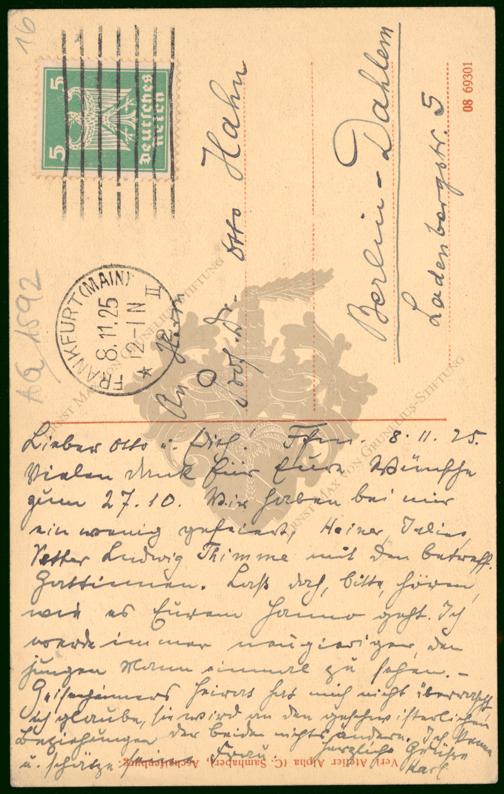 16
5
5
Deutsches
Reich
FRANKFURT (MAIN)
8.11.25
12-1 N
II
AQ 1892
An Herrn
Prof. Dr. Otto Hahn
Berlin-Dahlem
Ladenbergstr. 5
08 69301
ERNST MAX VON GRUNELIUS-STIFTUNG
Lieber Otto u. Edith! Ffm. 8.11.25.
Vielen Dank für Eure Wünsche
zum 27.10. Wir haben bei mir
ein wenig gefeiert, Heiner, Julius,
Vetter Ludwig Thimme mit den betreff.
Gattinnen. Laß doch, bitte, hören,
wie es Eurem Hanno geht. Ich
werde immer neugieriger, den
jungen Mann einmal zu sehen. –
Heirat hat mich nicht überrascht
ich glaube, sie wird an den geschwisterlichen
Beziehungen der beiden nichts ändern. Ich kenne
u. schätze Frau. Herzliche Grüße
Karl
Verl. Atelier Alpha (C. Samhaber), Aschaffenburg.